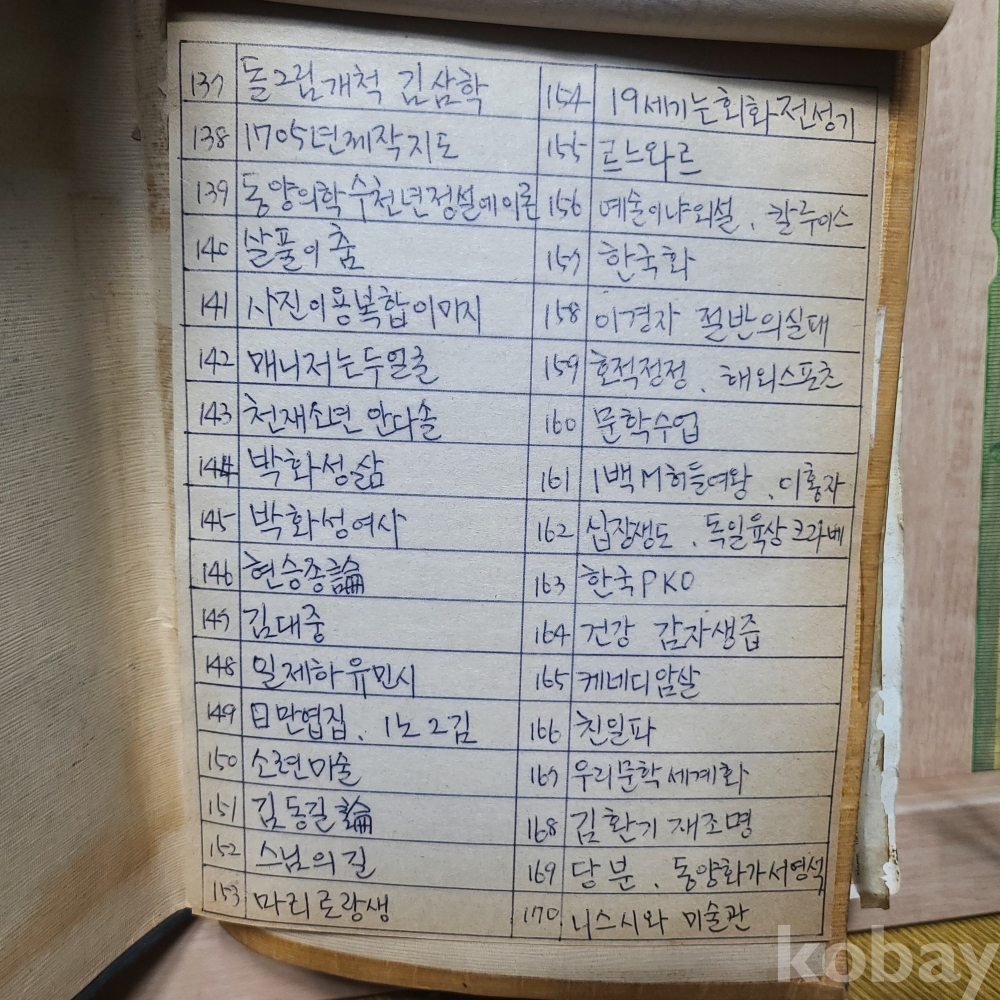 137 돌그림개척 김삼학
138 1705년제작지도
139 동양의학수천년정설에이론
140 살풀이춤
141 사진이용복합이미지
142 매니저는두얼굴
143 천재소년 안다솔
144 박화성삶
145 박화성여사
146 현승종論
147 김대중
148 일제하유민시
149 日만엽집. 1노2김
150 소련미술
151 김동길論
152 스님의길
153 마리로랑생
154 19세기는회화전성기
155 르느와르
156 예술이냐외설. 칼루이스
157 한국화
158 이경자 절반의실패
159 호적정정. 해외스포츠
160 문학수업
161 1백M허들여왕. 이황자
162 십장생도. 독일육상크라베
163 한국PKO
164 건강 감자생즙
165 케네디암살
166 친일파
167 우리문학세계화
168 김환기재조명
169 당분. 동양화가서영석
170 니스시와 미술관
kobay